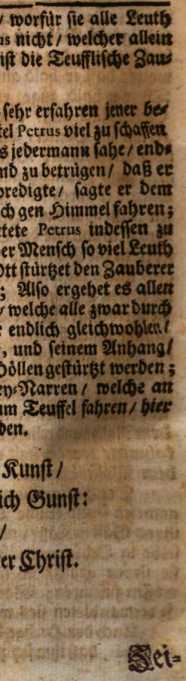 / worfür sie alle Leuth
us nicht / welcher allein
ist die Teufflische Zau-
sehr erfahren jener be-
tel Petrus viel zu schaffen
s jedermann sahe / end-
nd zu betrügen / daß er
predigte / sagte er dem
ch gen Himmel fahren ;
tete Petrus indessen zu
er Mensch so viel Leuth
Ott stürtzet den Zauberer
; Also ergehet es allen
/ welche alle zwar durch
r endlich gleichwohlen /
, und seinem Anhang /
Höllen gestürtzt werden ;
ey-Narren / welche an
um Teuffel fahren / hier
den.
Kunst /
ich Gunst:
/
er Christ.
Zei-